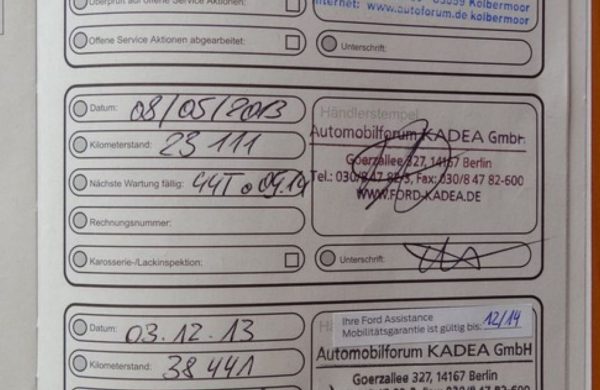 Überprüft auf offene Service Aktionen:
Kolbermoor
Internet: www.autoforum.de kolbermoor
Offene Service Aktionen abgearbeitet:
Unterschrift:
Datum: 08/05/2013
Händlerstempel
Automobilforum KADEA GmbH
Kilometerstand: 23 111
Goerzallee 327, 14167 Berlin
Tel.: 030/8 47 82-5, Fax: 030/8 47 82-600
Nächste Wartung fällig: 44T o 09.14
WWW.FORD-KADEA.DE
Rechnungsnummer:
Karosserie-/Lackinspektion:
Unterschrift:
Ihre Ford Assistance
Mobilitätsgarantie ist gültig bis: 12/14
Datum: 03.12.13
Automobilforum KADEA GmbH
Kilometerstand: 38 441
Goerzallee 327, 14167 Berlin
82-600